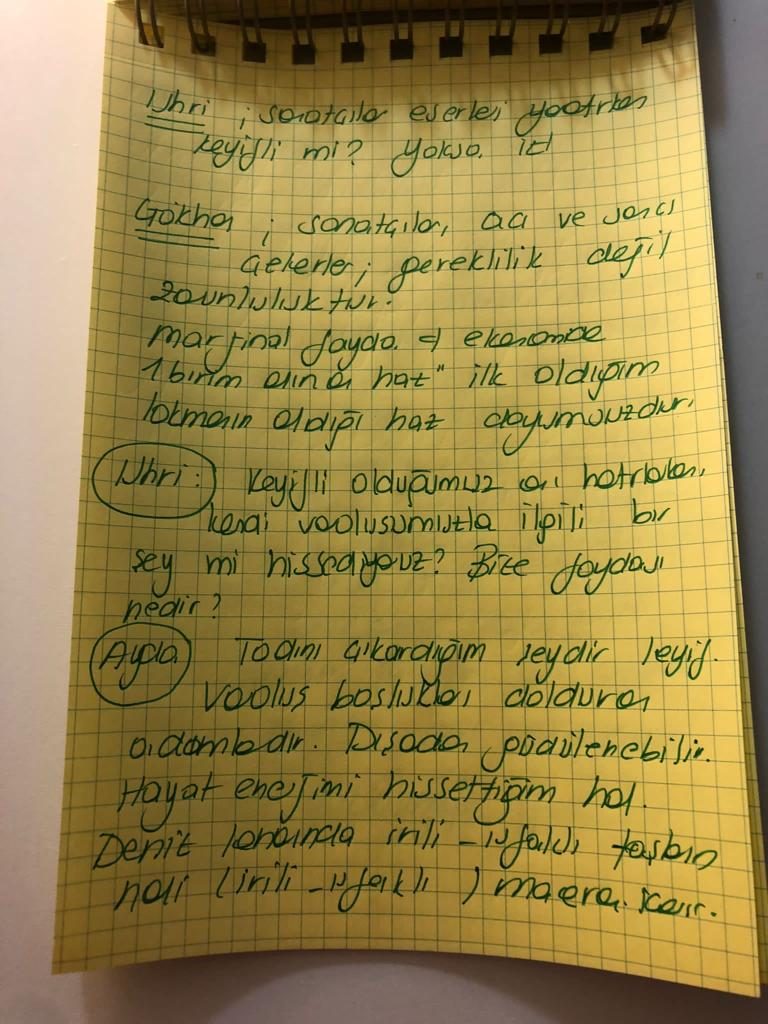 Uhri ; sanatçılar eserleri yaratırken
keyifli mi? Yoksa
Gökhan ; sanatçılar, acı ve sancı
çekerler; gereklilik değil
zorunluluktur.
marjinal fayda ekonomide
1 birim haz" ilk aldığım
lokmanın aldığı haz doyumumuzdur.
Uhri : Keyifli olduğumuz anı hatırlarken,
kendi varoluşumuzla ilgili bir
şey mi hissediyoruz? Bize faydası
nedir?
Ayda Tadını çıkardığım şeydir keyif.
Varoluş boşlukları dolduran
adamlardır. Dışardan güdülenebilir.
Hayat enerjimi hissettiğim hal.
Deniz kenarında irili-ufaklı taşların
hali (irili-ufaklı) macera